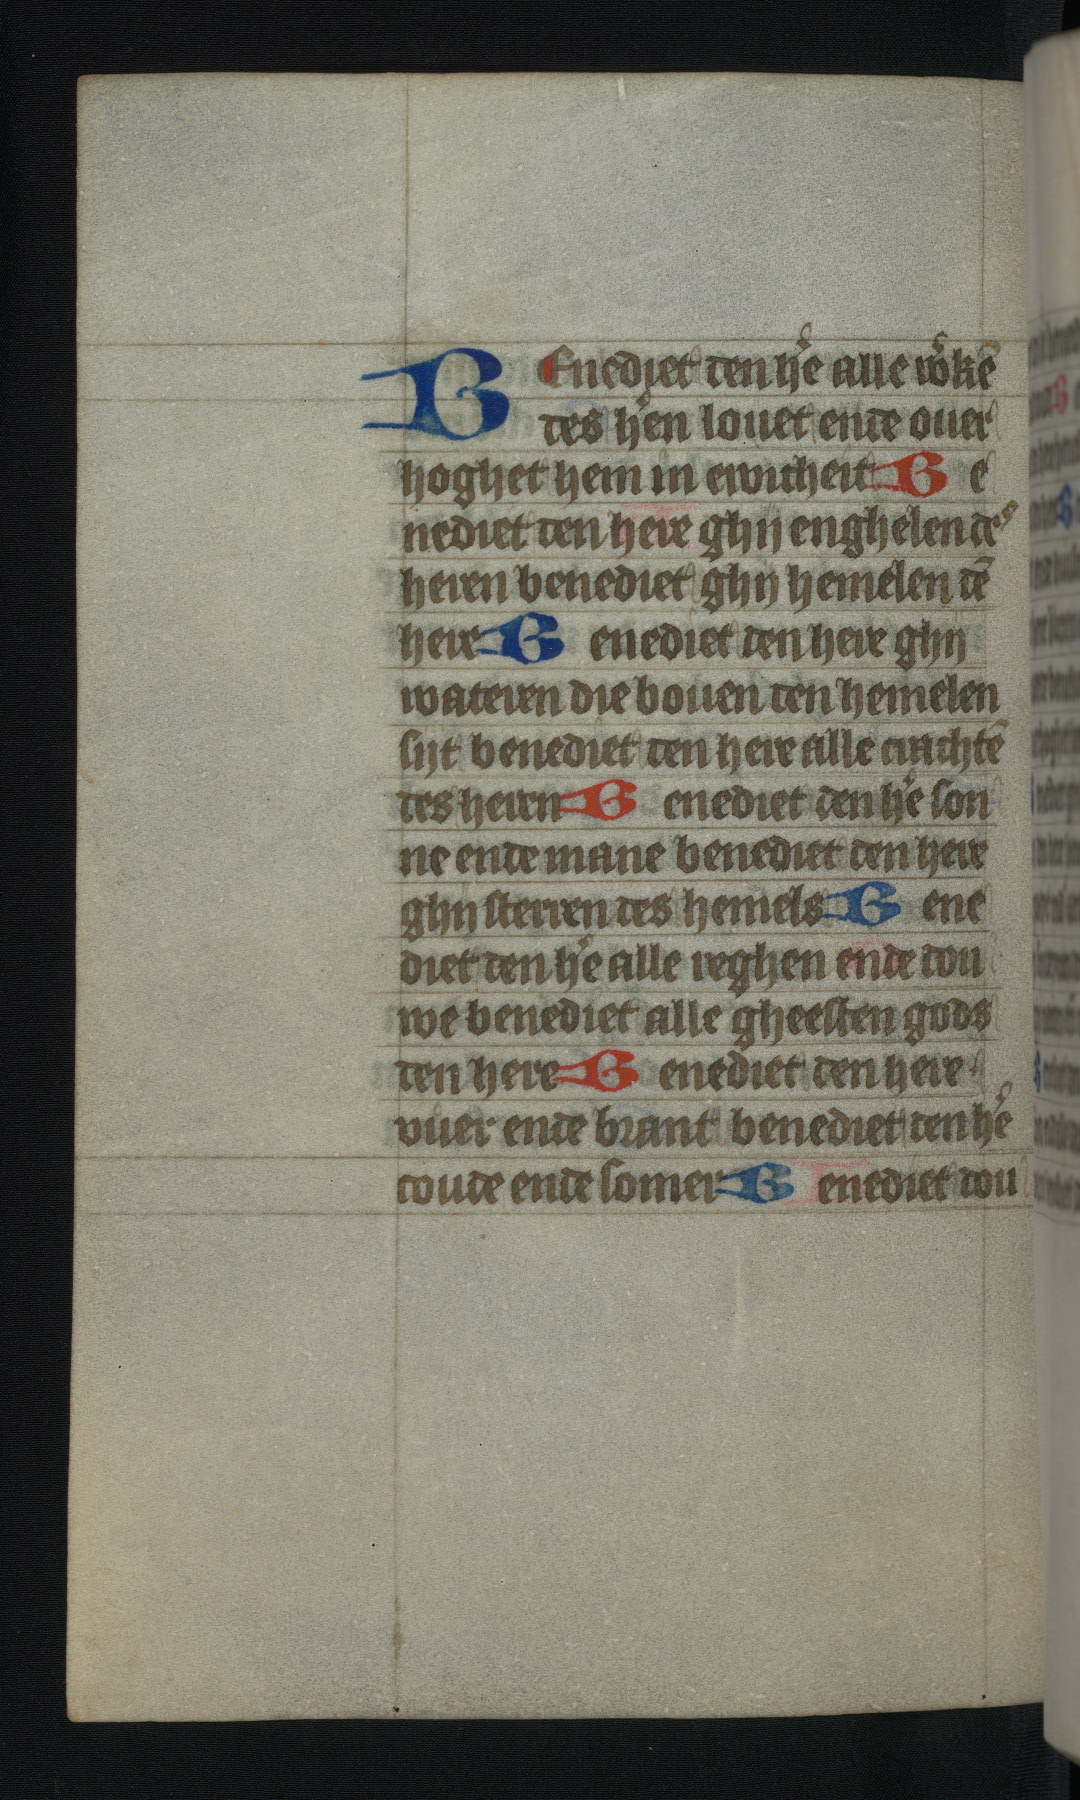 BEnediet den hᵉe alle wᵒkē
des hᵉen louet ende ouer
hoghet hem in ewicheit B e
nediet den here ghij enghelen des
heren benediet ghij hemelen dē
here B enediet den here ghij
wateren die bouen den hemelen
sijt benediet den here alle crachtē
des heren B enediet den hᵉe son
ne ende mane benediet den here
ghij sterren des hemels B ene
diet den hᵉe alle reghen ende dou
we benediet alle gheesten gods
den here B enediet den here
vuer ende brant benediet den hᵉe
coude ende somer B enediet dou